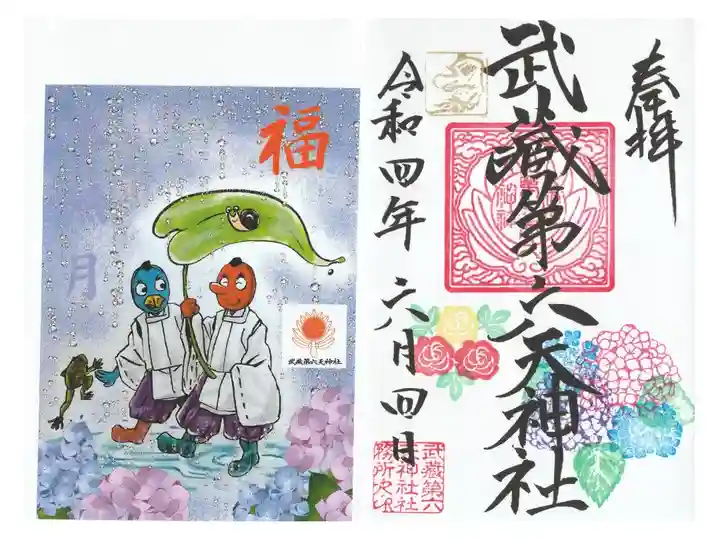 福
月
武蔵第六天神社
奉拝
武蔵第六天神社
令和四年 六月四日
武蔵第六
神社社
務所之印